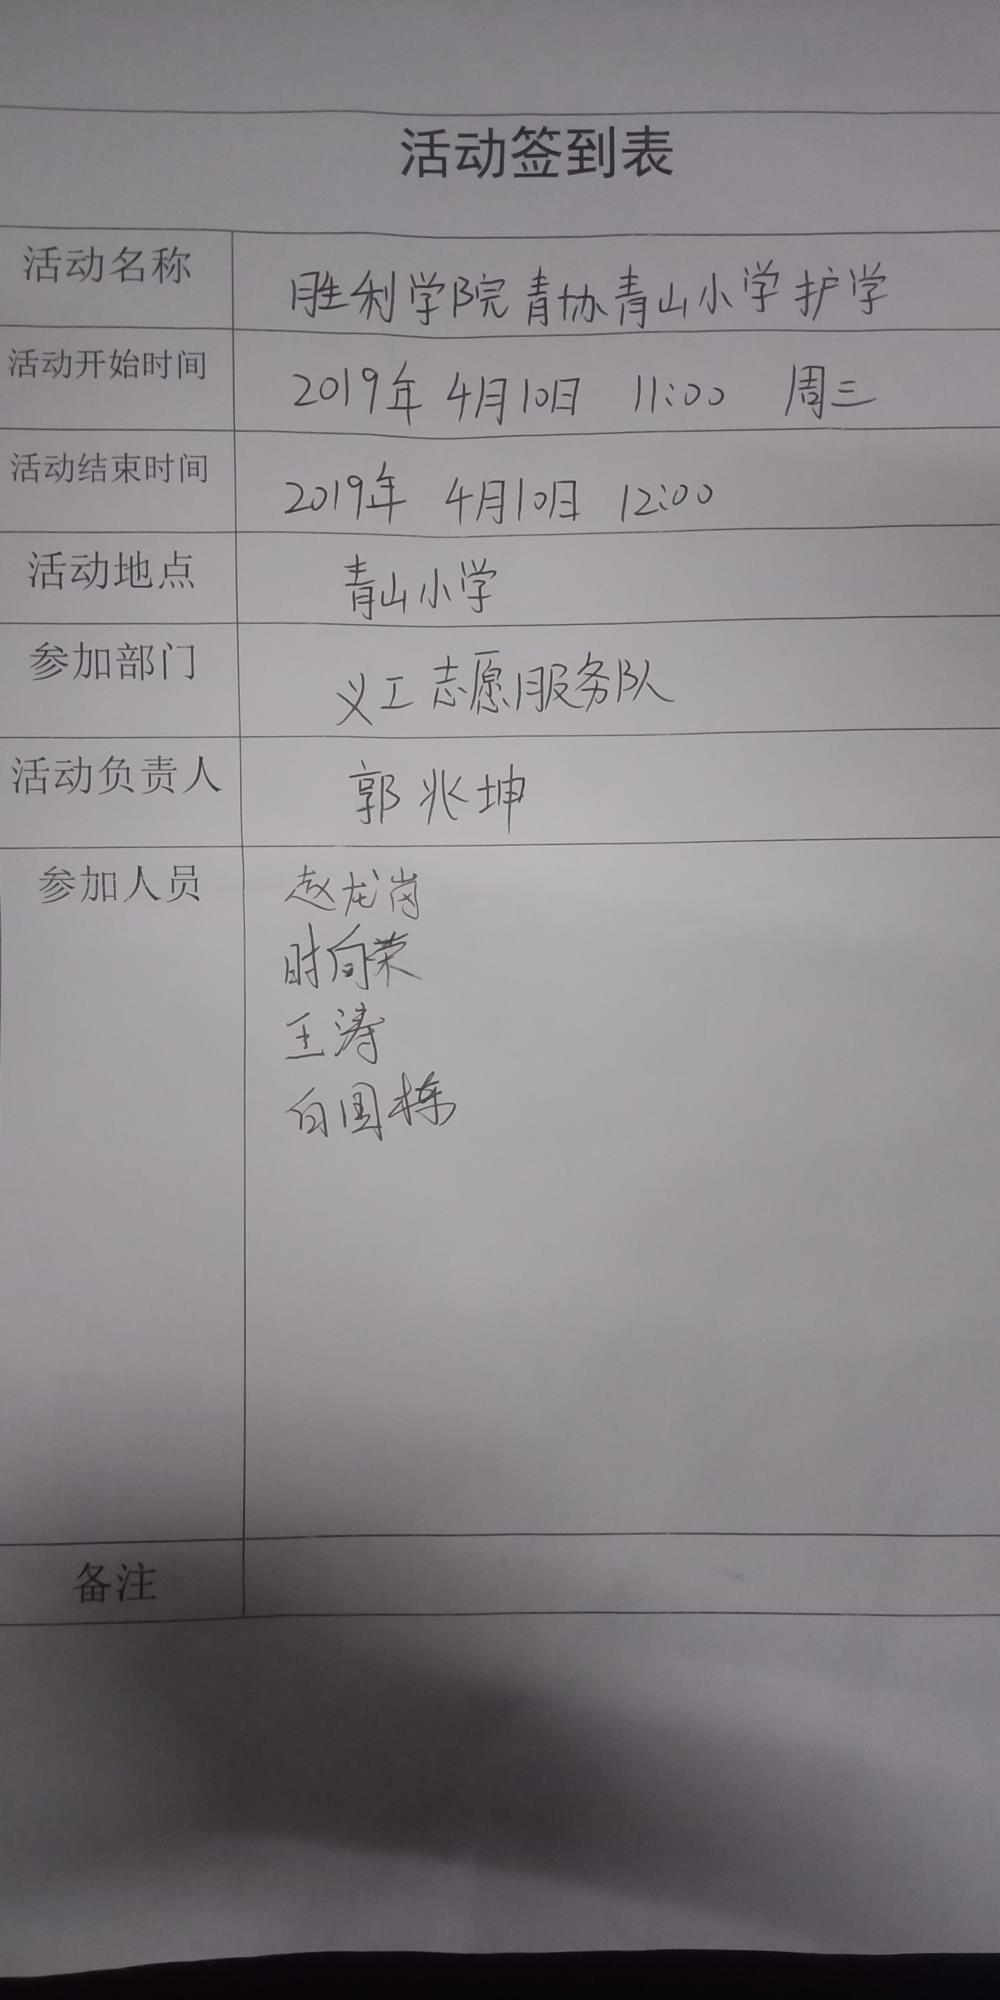 活动签到表
活动名称 胜利学院青协青山小学护学
活动开始时间 2019年 4月10日 11:00 周三
活动结束时间 2019年 4月10日 12:00
活动地点 青山小学
参加部门 义工志愿服务队
活动负责人 郭兆坤
参加人员 赵龙岗
时向荣
王涛
白国栋
备注